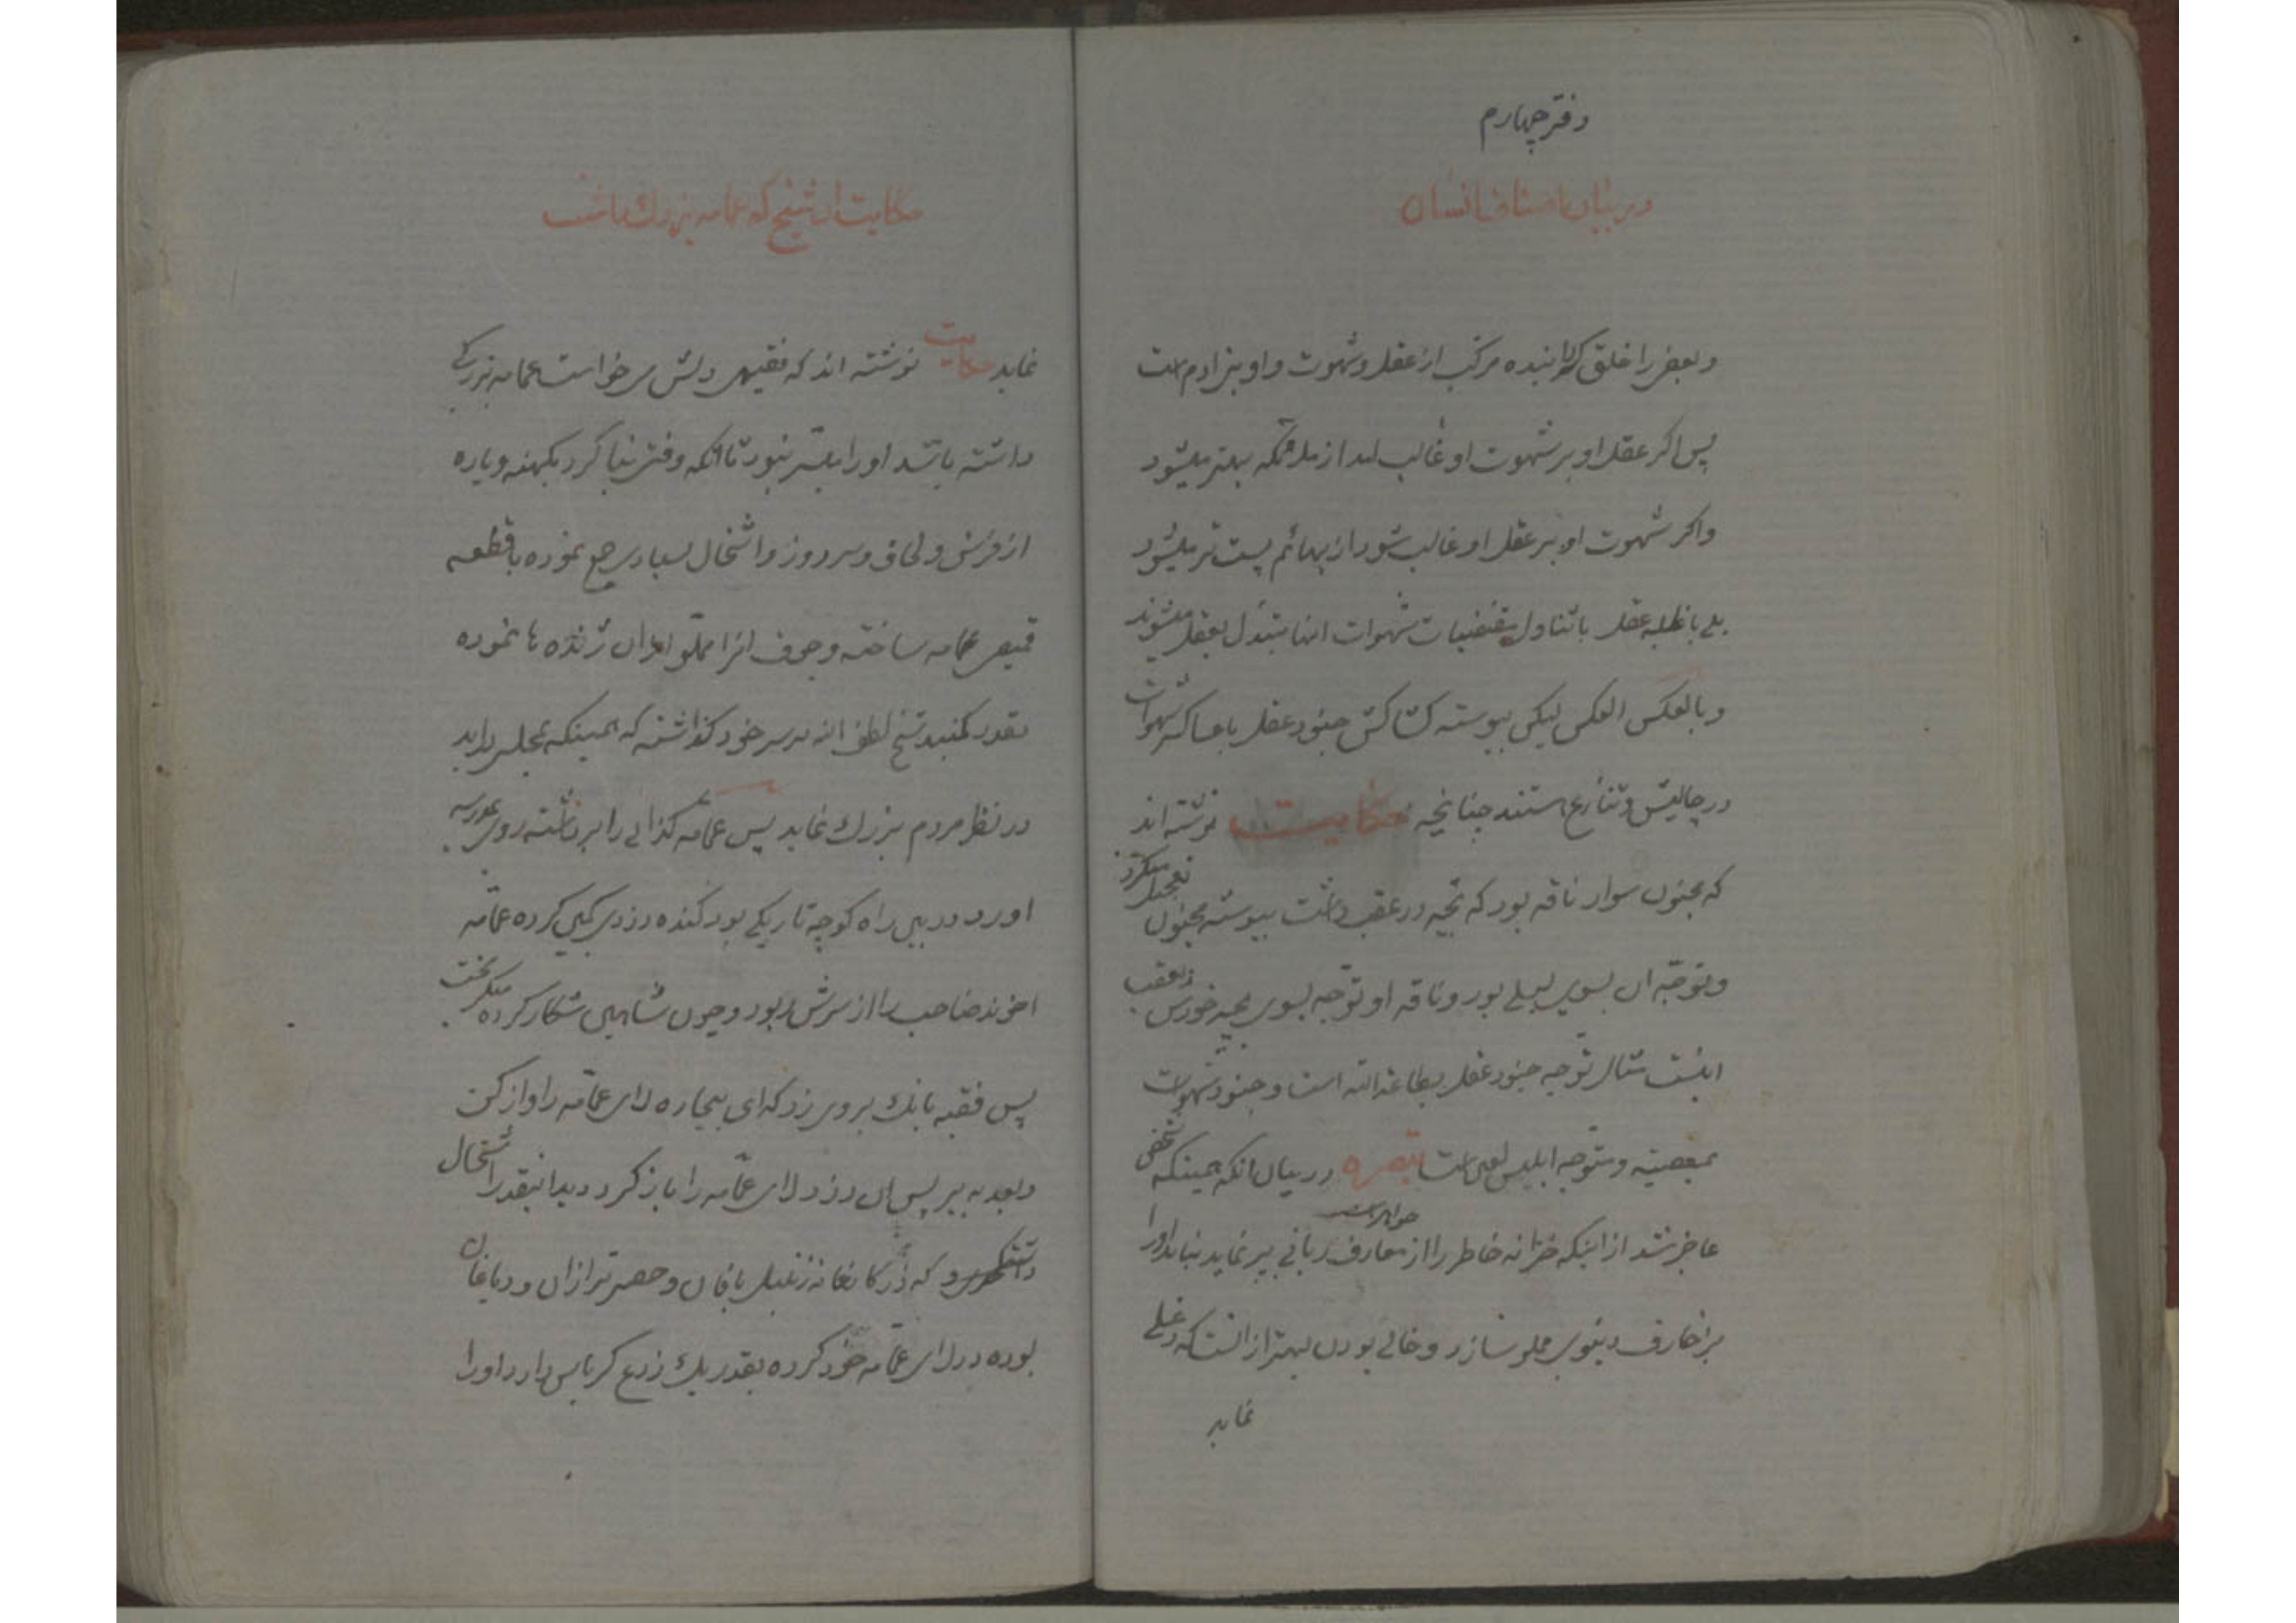 دفتر چهارم
در بیان اصناف انسان
وبعضی را خلق گردانیده مرکب از عقل و شهوت و او بنی ادم است
پس اکر عقل او بر شهوت او غالب امد از ملائکه بهتر میشود
واکر شهوت او بر عقل او غالب شود از بهائم پست تر میشود
بلی با غلبه عقل باتناول مقتضیات شهوات انها متبدل بعقل میشوند
وبالعکس العکس لیکن پیوسته کشاکش جنود عقل با عساکر شهوات
در چالیش وتنازع استند چنانچه حکایت نوشته اند
که مجنون سوار ناقه بود که بچه در عقب داشت پیوسته مجنون تعجیل میکرد
وتوجه ان بسوی لیلی بود وناقه او توجه بسوی بچه خودش در عقب
اینست مثال توجه جنود عقل بطاعة الله است وجنود شهوات
بمعصیته ومتوجه ابلیس لعین است تبصره در بیان انکه همینکه شخصی
عاجز شد از اینکه خزانه خاطر را از جواهرات معارف ربانی پر نماید نباید اورا
بزخارف دنیوی مملو سازد و خالی بودن بهتر از انست که دغلی
نماید
حکایت ان شیخ که عمامه بزرك داشت
نماید حکایت نوشته اند که فقیهی دلش میخواست عمامه بزرکی
داشته باشد اورا میسر نبود تا انکه وقتی بنا کرد بکهنه وپاره
از فرش ولحاف وسر دوز واشخال بسیاری جمع نموده با قطعه
قمیص عمامه ساخته وجوف انرا مملو از ان ژنده ها نموده
بقدر کنبد شیخ لطف الله بر سر خود کذاشته که همینکه بمجلس دراید
در نظر مردم بزرك نماید پس عمامه کذائی را برداشته روی بمدرسه
اورد در بین راه کوچه تاریکی بود کنده دزدی کمین کرده عمامه
اخوند صاحب را از سرش ربود وچون شاهین شکار کرده میکریخت
پس فقیه بانك بر وی زد که ای بیچاره لای عمامه را واز کن
وبعد به ببر پس ان دزد لای عمامه را باز کرد دید اینقدر اشخال
داشت که در کارخانه زنبیل بافان وحصیر ترازان ودباغان
بوده در لای عمامه خود کرده بقدر یك زرع کرباس دارد اورا